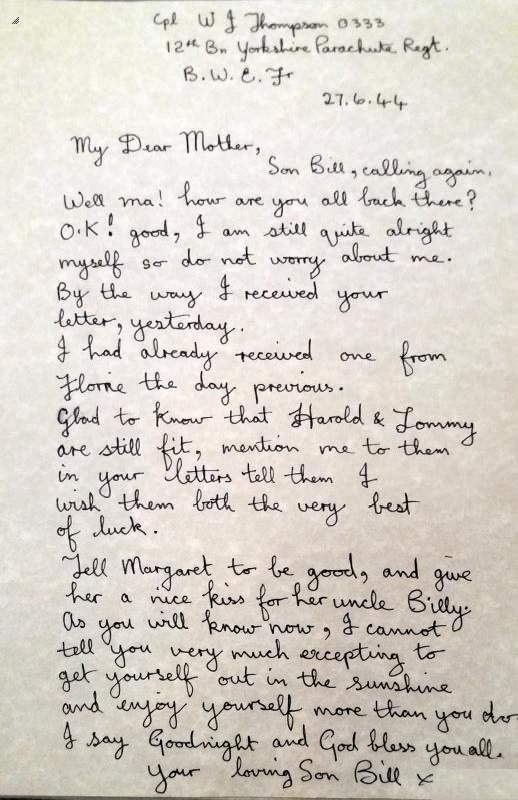 Cpl W J Thompson 0333
12th Bn Yorkshire Parachute Regt.
B. W. E. Fr
27.6.44
My Dear Mother,
Son Bill, calling again.
Well ma! how are you all back there?
O.K! good, I am still quite alright
myself so do not worry about me.
By the way I received your
letter, yesterday.
I had already received one from
Florrie the day previous.
Glad to know that Harold & Tommy
are still fit, mention me to them
in your letters tell them I
wish them both the very best
of luck.
Tell Margaret to be good, and give
her a nice kiss for her uncle Billy.
As you will know now, I cannot
tell you very much excepting to
get yourself out in the sunshine
and enjoy yourself more than you do.
I say Goodnight and God bless you all.
Your loving Son Bill x